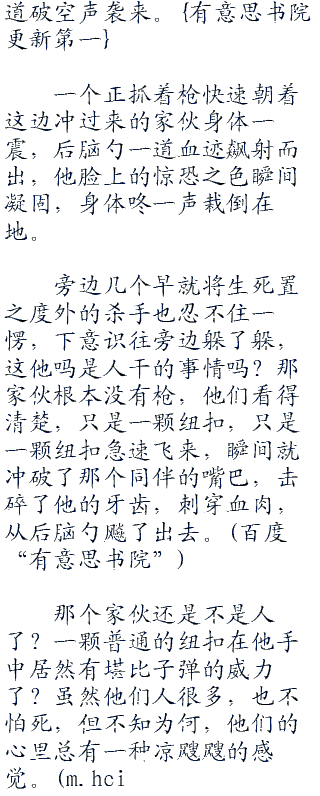 道破空声袭来。{有意思书院
更新第一}
一个正抓着枪快速朝着
这边冲过来的家伙身体一
震，后脑勺一道血迹飙射而
出，他脸上的惊恐之色瞬间
凝固，身体咚一声栽倒在
地。
旁边几个早就将生死置
之度外的杀手也忍不住一
愣，下意识往旁边躲了躲，
这他吗是人干的事情吗？那
家伙根本没有枪，他们看得
清楚，只是一颗纽扣，只是
一颗纽扣急速飞来，瞬间就
冲破了那个同伴的嘴巴，击
碎了他的牙齿，刺穿血肉，
从后脑勺飚了出去。(百度
“有意思书院”)
那个家伙还是不是人
了？一颗普通的纽扣在他手
中居然有堪比子弹的威力
了？虽然他们人很多，也不
怕死，但不知为何，他们的
心里总有一种凉飕飕的感
觉。(m.hci